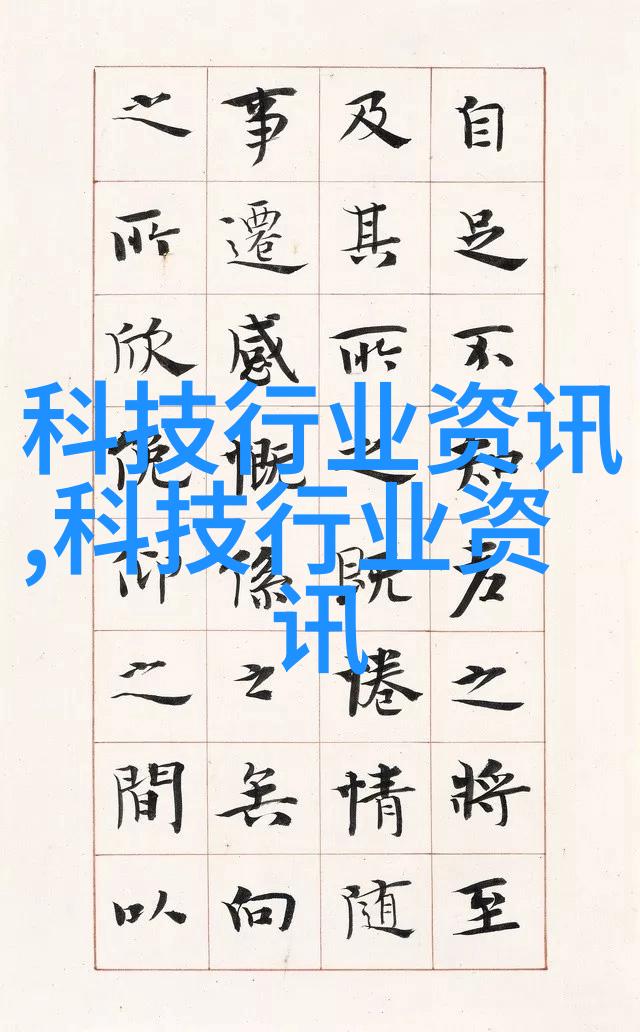 自足不知老之將至
及其所之既惓情隨
事遷感慨係之矣向
之所欣俛仰之間以
科技行业资讯
,科技行业资
讯